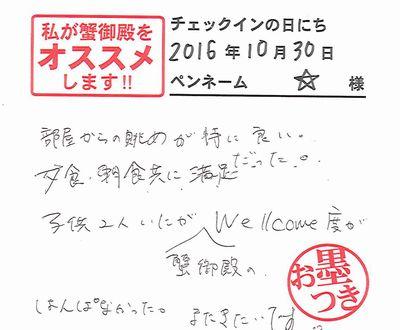 私が蟹御殿を
オススメ
します!!
チェックインの日にち
2016年10月30日
ペンネーム ☆ 様
部屋からの眺めが特に良い。
夕食・朝食共に満足だった。
子供2人いたが Wellcome度が
蟹御殿の
はんぱなかった。 またきたいでーす
お墨つき